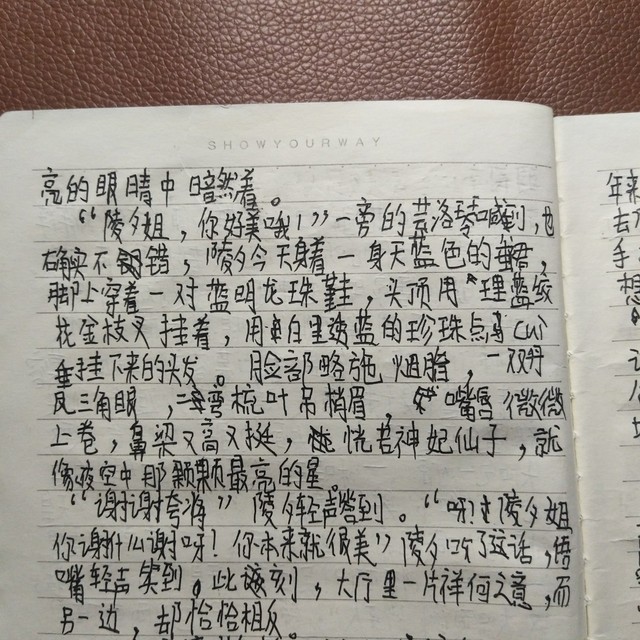 SHOWYOURWAY
亮的眼睛中暗然着。
“陵夕姐，你好美哦！”一旁的芸洛琴喊到，也
确实不错，陵夕今天身着一身天蓝色的
脚上穿着一对蓝明龙珠鞋，头顶用理蓝纹
花金枝叉挂着，用白里透蓝的珍珠点
垂挂下来的头发。脸部略施烟脂，一双丹
凤三角眼，二弯梳叶吊梢眉，嘴唇微微
上卷，鼻梁又高又挺，恍若神妃仙子，就
像夜空中那颗颗最亮的星。
“谢谢夸将”陵夕轻声答到。“呀！陵夕姐
你谢什么谢呀！你本来就很美”陵夕听了这话，捂
嘴轻声笑到。此刻，大厅里一片祥何之意，而
另一边，却恰恰相反
年来
去
手
想